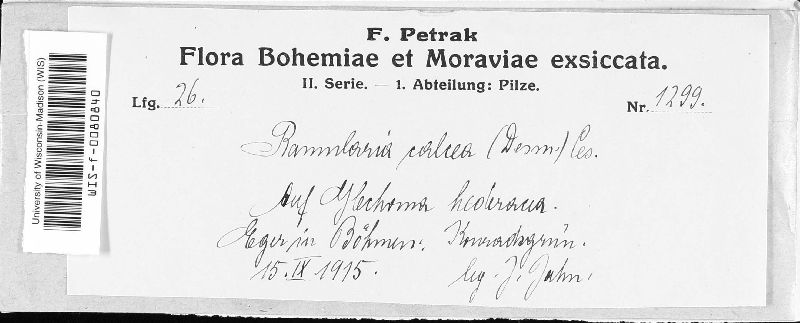 F. Petrak
Flora Bohemiae et Moraviae exsiccata.
II. Serie. — 1. Abteilung: Pilze.
Lfg. 26.
Nr. 1299.
Ramularia calcea (Desm.) Ces.
Auf Glechoma hederacea.
Eger in Böhmen: Konradsgrün.
15. IX 1915.
leg. J. Jahn.
University of Wisconsin-Madison (WIS)
WIS-f-0080840